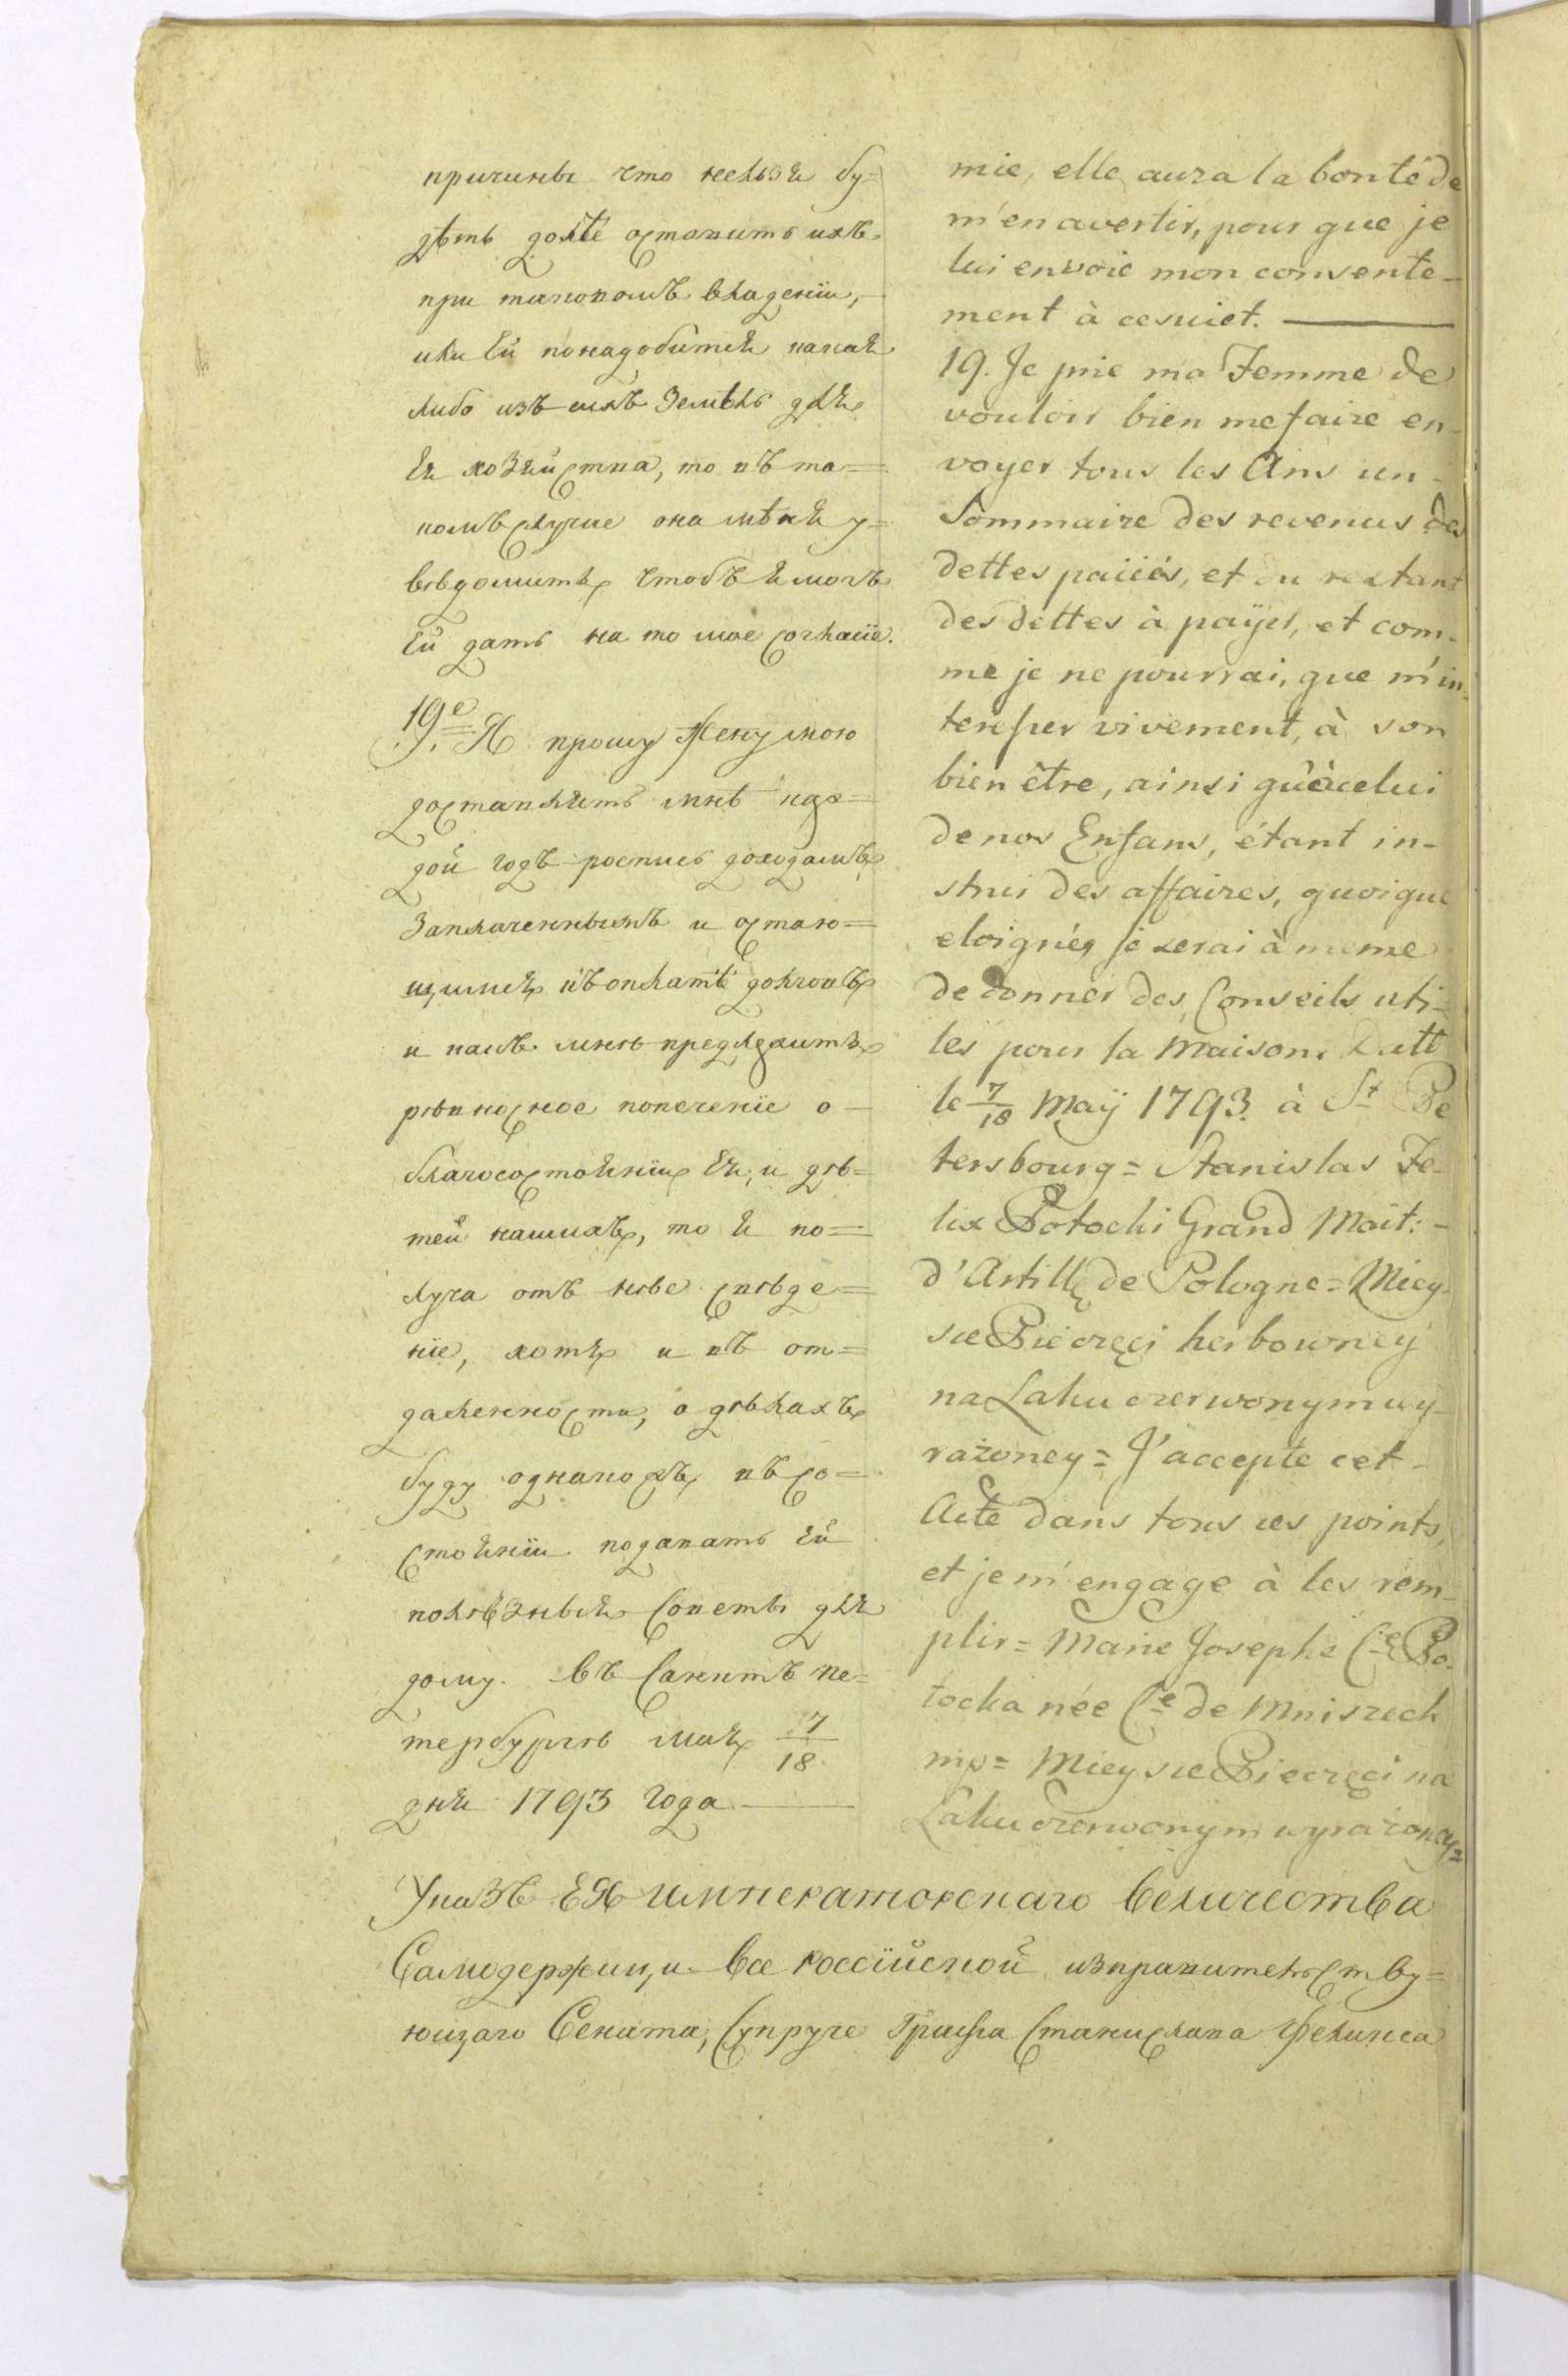 причины что нельзя бу=
дѣтъ долѣе оставить ихъ
при таковомъ владенїи,
или Ей понадобится какая
либо изъ сихъ Земѣль для
Ея хозяйства, то въ та=
комъ случае она мѣня у=
вѣдомитъ чтобъ я могъ
Ей дать на то мое согласїе.
19е Я прошу Жену мою
доставлять мнѣ каж=
дой годъ роспись доходамъ
Заплаченнымъ и остаю=
щимся къ оплатѣ долгамъ
и какъ мнѣ предлежитъ
рѣвносное попеченїе о
благосостоянїи Ея, и дѣ=
тей нашихъ, то я по=
луча отъ нѣе свѣде=
нїе, хотя и въ от=
даленности, о дѣлахъ
буду однакожъ въ со=
стоянїи подавать Ей
полѣзныя Советы для
дому. Въ Санктъ пе=
тербургѣ мая 7/18
дня 1793 года
mie, elle aura la bonté de
m'en avertir, pour que je
lui envoie mon consente-
ment à ce suiet.
19. Je prie ma Femme de
vouloir bien me faire en-
voyer tous les Ans un-
Sommaire des revenus des
dettes païées, et du restant
des dettes à payer, et com-
me je ne pourrai, que m'in-
teresser vivement, à son
bien être, ainsi qu'à celui
de nos Enfans, étant in-
struis des affaires, quoique
eloignée, je serai à meme
de donner des Conseils uti-
les pour la Maison. Datt
le 7/18 Maÿ 1793. à St Pe
tersbourg = Stanislas Fe-
lix Potocki Grand Mait: -
d'Artille de Pologne = Miey-
sce Pieczęci herbowney
na Laku czerwonym wy-
rażoney = J'accepte cet -
Acte dans tous ces points,
et je m'engage à les rem-
plir = Marie Josephe Ce Po-
tocka née Ce de Mniszech
mp = Mieysce Pieczęci na
Laku czerwonym wyrażoney =
Указъ ЕЯ императорскаго величества
Самодержицы все россїйской изправительству=
ющаго Сената, Супруге Графа Станислава Феликса